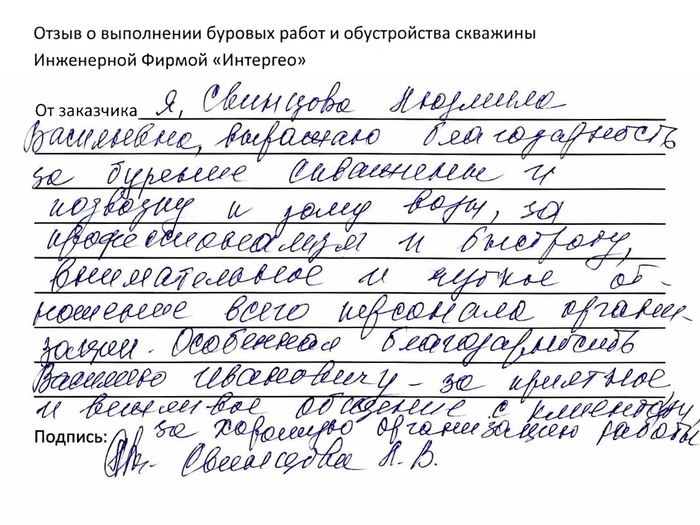 Отзыв о выполнении буровых работ и обустройства скважины
Инженерной Фирмой «Интергео»
От заказчика Я, Свинцова Людмила
Васильевна, выражаю благодарность
за бурение скважины и
подводку к дому воды, за
профессионализм и быстроту,
внимательное и чуткое от-
ношение всего персонала органи-
зации. Особенная благодарность
Василию Ивановичу – за приятное
и вежливое общение с клиентом,
за хорошую организацию работы
Подпись: Свинцова Л. В.